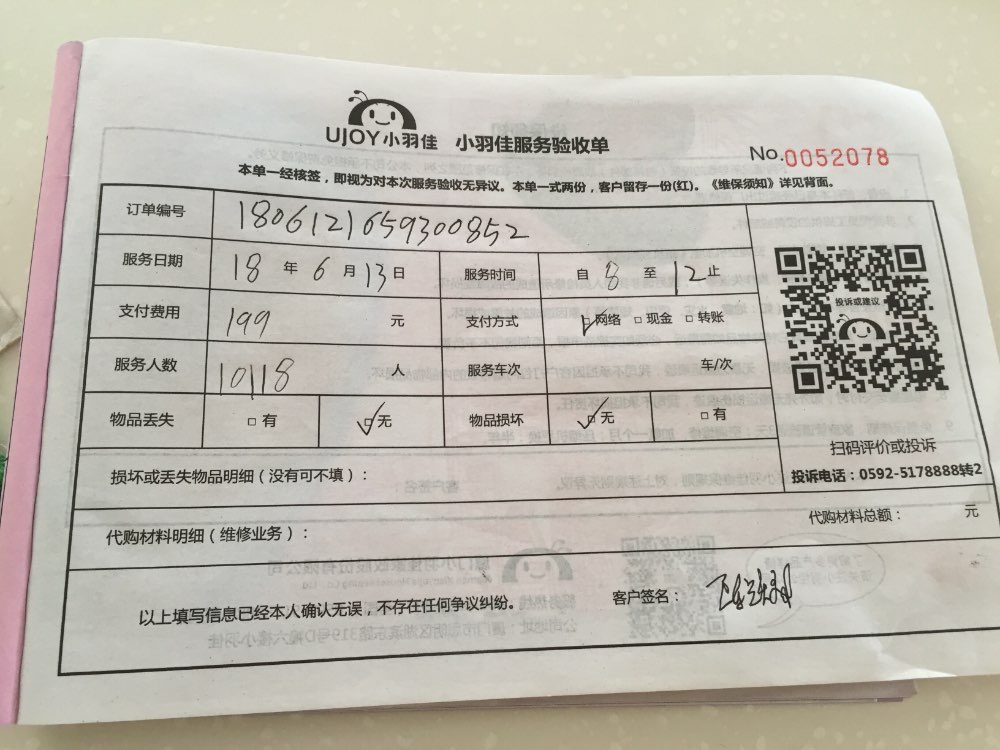 UJOY小羽佳 小羽佳服务验收单
No.0052078
本单一经核签，即视为对本次服务验收无异议。本单一式两份，客户留存一份(红)。《维保须知》详见背面。
订单编号 1806121659300852
服务日期 18 年 6 月 13 日 服务时间 自 8 至 12 止
支付费用 199 元 支付方式 网络 现金 转账
服务人数 10118 人 服务车次 车/次
物品丢失 有 无 物品损坏 无 有
投诉或建议
扫码评价或投诉
投诉电话：0592-5178888转2
损坏或丢失物品明细（没有可不填）：
代购材料明细（维修业务）：
代购材料总额： 元
以上填写信息已经本人确认无误，不存在任何争议纠纷。
客户签名：